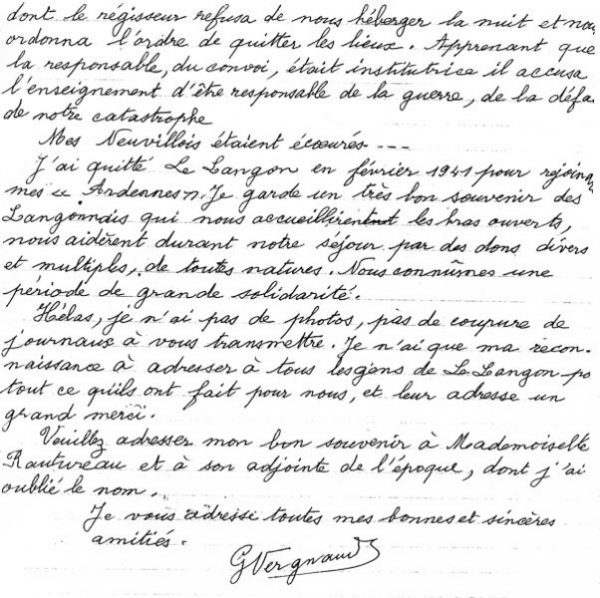 dont le régisseur refusa de nous héberger la nuit et nou
ordonna l'ordre de quitter les lieux. Apprenant que
la responsable, du convoi, était institutrice il accusa
l'enseignement d'être responsable de la guerre, de la défa
de notre catastrophe
Mes Neuvillois étaient écœurés ----
J'ai quitté Le Langon en février 1941 pour rejoin
mes « Ardennes ». Je garde un très bon souvenir des
Langonnais qui nous accueillirent les bras ouverts,
nous aidèrent durant notre séjour par des dons divers
et multiples, de toutes natures. Nous connûmes une
période de grande solidarité.
Hélas, je n'ai pas de photos, pas de coupure de
journaux à vous transmettre. Je n'ai que ma recon-
naissance à adresser à tous les gens de Le Langon po
tout ce qu'ils ont fait pour nous, et leur adresse un
grand merci.
Veuillez adresser mon bon souvenir à Mademoiselle
Rautureau et à son adjointe de l'époque, dont j'ai
oublié le nom.
Je vous adresse toutes mes bonnes et sincères
amitiés.
GVergnaud